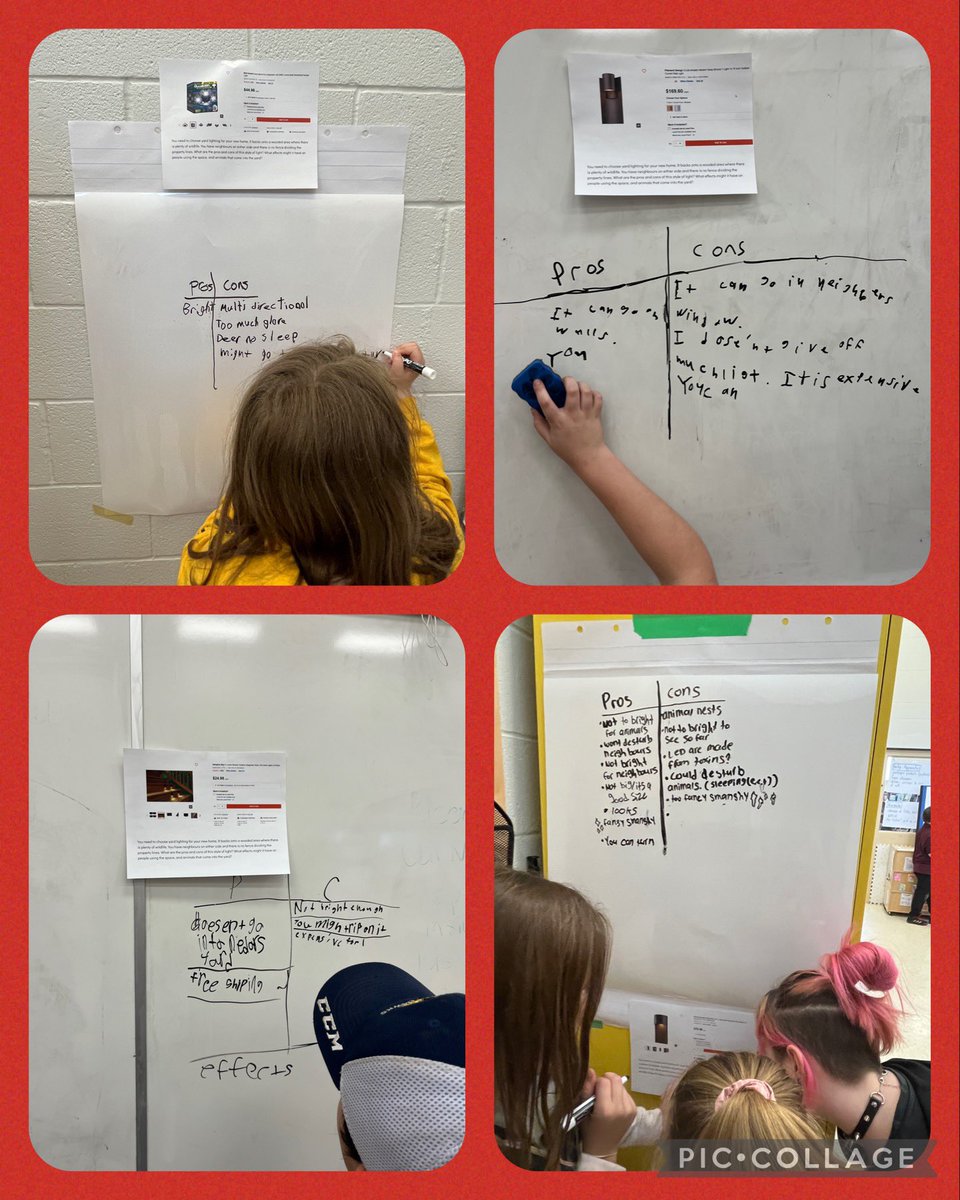 $44.98
You need to choose yard lighting for your new home. It backs onto a wooded area where there
is plenty of wildlife. You have neighbours on either side and there is no fence dividing the
property lines. What are the pros and cons of this style of light? What effects might it have on
people using the space, and animals that come into the yard?
Pros Cons
Bright Multi directional
Too much glare
Deer no sleep
might go t
$169.60
You need to choose yard lighting for your new home. It backs onto a wooded area where there
is plenty of wildlife. You have neighbours on either side and there is no fence dividing the
property lines. What are the pros and cons of this style of light? What effects might it have on
people using the space, and animals that come into the yard?
Pros
It can go on
walls.
You
cons
It can go in neighbers
window.
I dose'nt give off
much light. It is extensive
You can
$24.98
You need to choose yard lighting for your new home. It backs onto a wooded area where there
is plenty of wildlife. You have neighbours on either side and there is no fence dividing the
property lines. What are the pros and cons of this style of light? What effects might it have on
people using the space, and animals that come into the yard?
P
doesent go
into
yard
free shiping
C
Not bright enough
You might trip on it
expensive for 1
effects
CCM
Pros
• Not to bright
for animals
• wont desturb
neighbours
• Not bright
for neighbours
• Not big its a
good size
• looks
fansy smanshy
• You can turn
cons
animal nests
• not to bright to
see so far
• LED are made
from toxins?
• could desturb
animals. (sleeping(ect))
• too fancy smanshy
•
PIC•COLLAGE